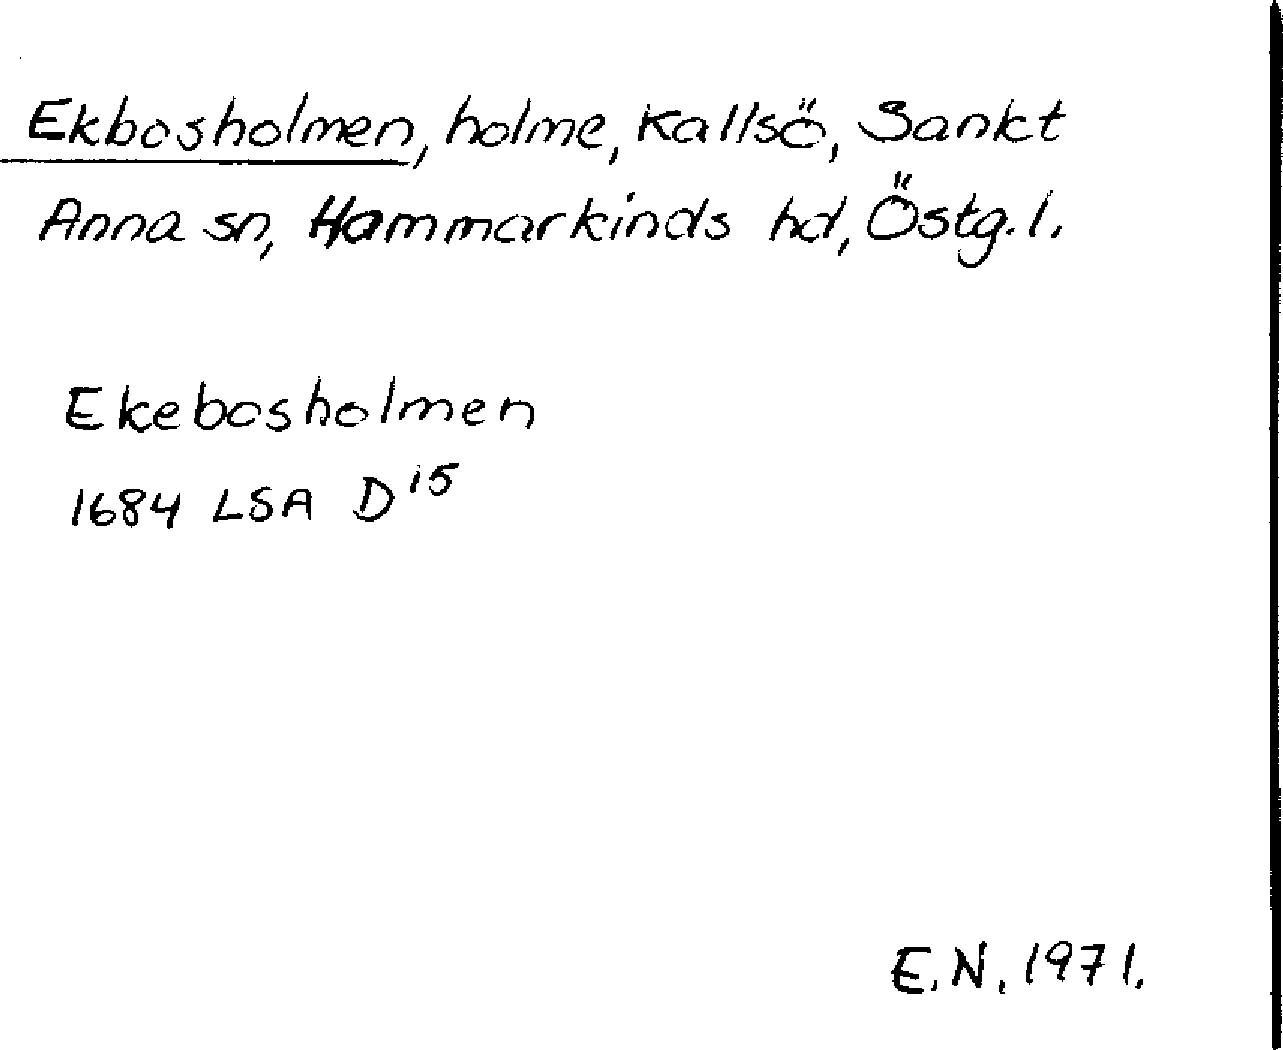 Ekbosholmen, holme, Kallsö, Sankt
Anna sn, Hammarkinds hd, Östg.l.
Ekebosholmen
1684 LSA D15
E.N. 1971.